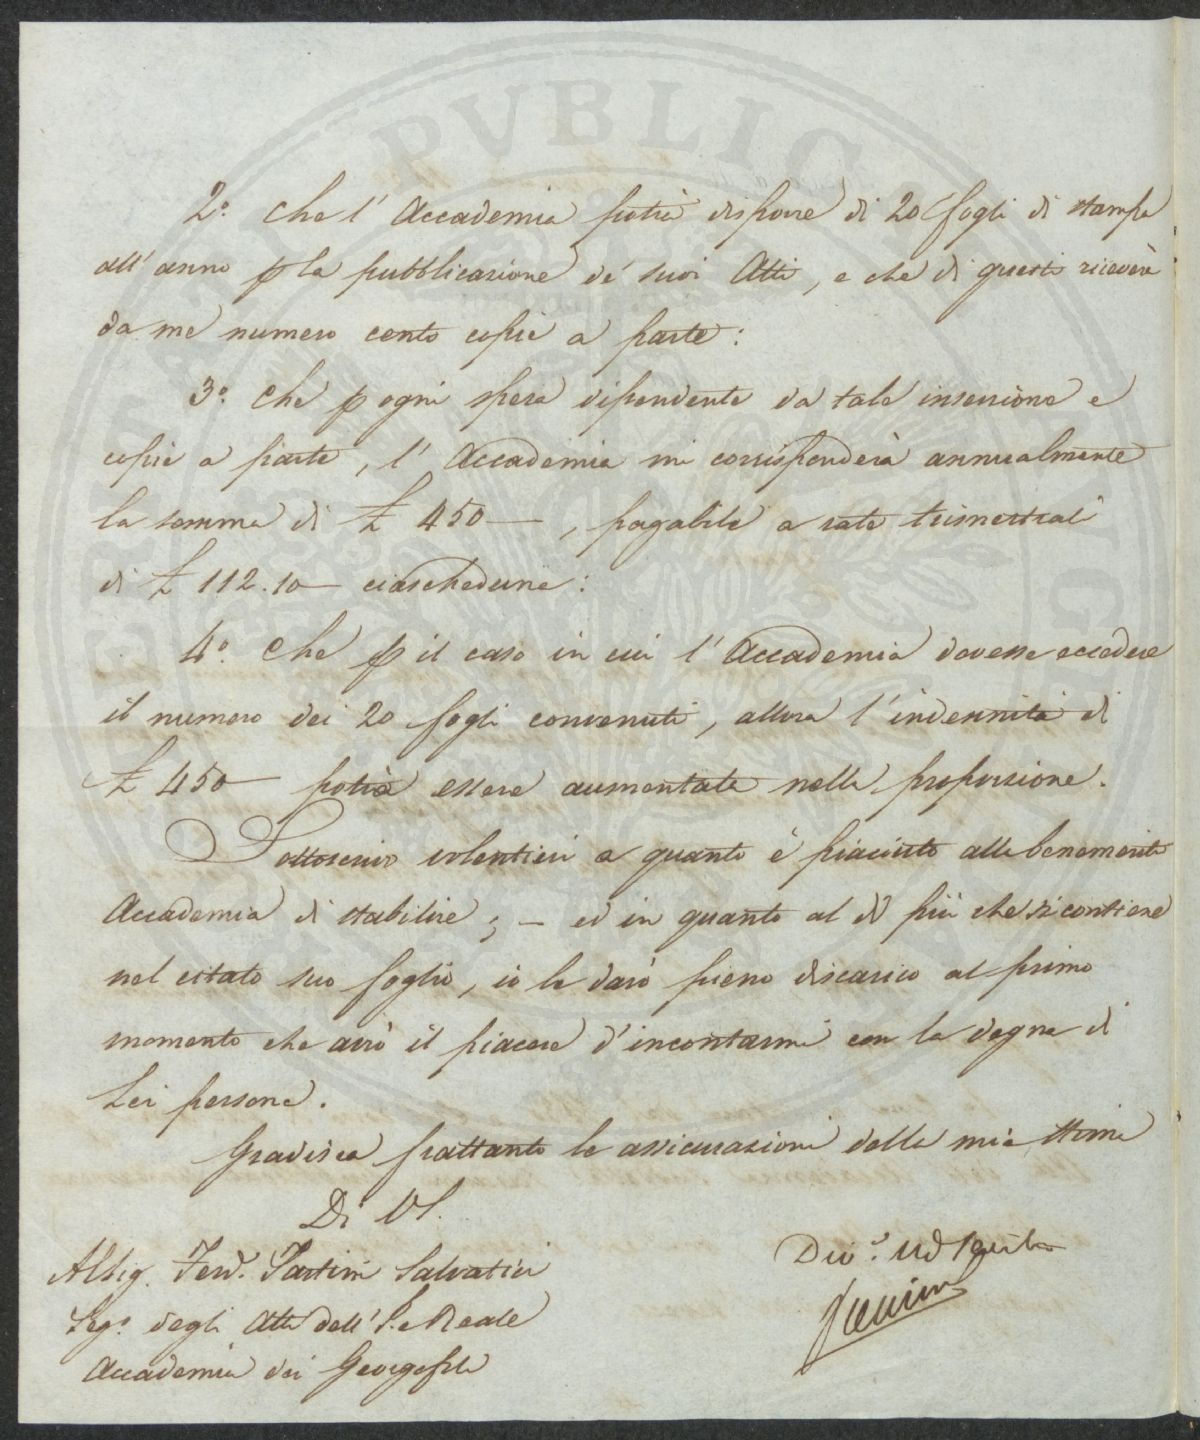 2.° Che l' Accademia potrà disporre di 20 fogli di stampa
all' anno p la pubblicazione de' suoi Atti, e che di questi riceverà
da me numero cento copie a parte:
3.° Che p ogni spesa dipendente da tale inserzione e
copie a parte, l' Accademia mi corrisponderà annualmente
la somma di £ 450 —, pagabile a rate trimestrali
di £ 112.10 — ciascheduna:
4.° Che p il caso in cui l' Accademia dovesse eccedere
il numero dei 20 fogli convenuti, allora l' indennità di
£ 450 — potrà essere aumentata nella proporzione.
Sottoscrivo volentieri a quanto è piaciuto alla benemerita
Accademia di stabilire; — ed in quanto al di più che si contiene
nel citato suo foglio, io le darò pieno discarico al primo
momento che avrò il piacere d' incontrarmi con la degna di
Lei persona.
Gradisca frattanto le assicurazioni della mia stima
Di VS.
Al Sig. Ferd. Tartini Salvatici
Seg.° degli Atti dell' I. e Reale
Accademia dei Georgofili
PVBLIC